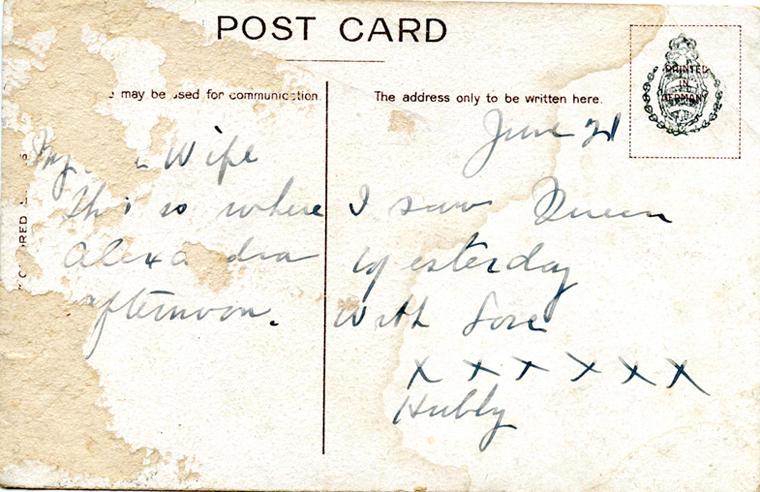 POST CARD
PRINTED
IN
GERMANY
may be used for communication.
The address only to be written here.
June 21
My Wife
This is where I saw Queen
Alexa dra yesterday
afternoon. With Love
x x x x x x
Hubby